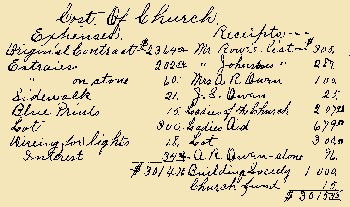 Cost Of Church
Expenses. Receipts---
Original Contract $2364.00 Mr Row's list- $ 305.
Extrairs 202.00 " Johnstons " 289.
" on stone 60. Mrs A. R. Owen 100.
Sidewalk 21. J. S. Owen 25.
Blue Prints 15. Ladies of the Church 207
Lot 300. Ladies Aid 679
Wireing for lights 18. Lot 300
Interest A. R. Owen-stone 96.
Building Society 1000.
Church fund 15.